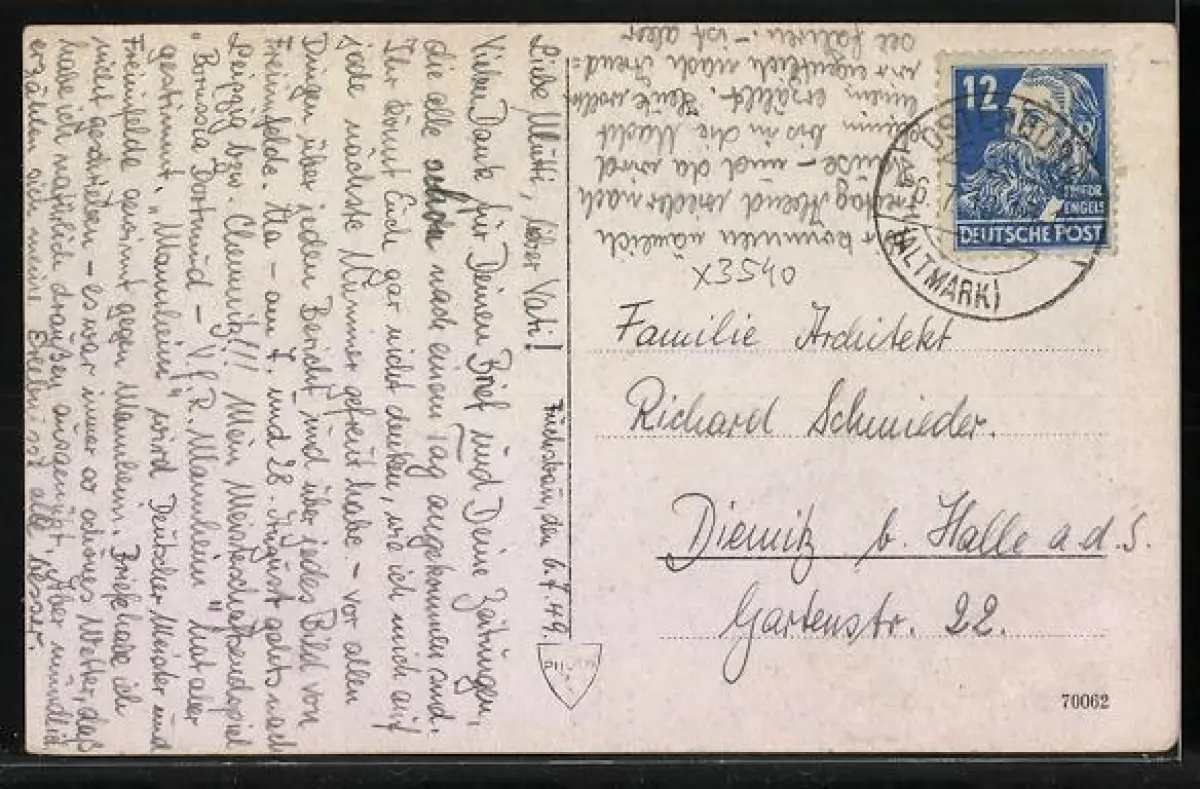 Füchsbau, den 6.7.49.
Liebe Mutti, lieber Vati!
Vielen Dank für Deinen Brief und Deine Zeitungen,
die alle schon nach einem Tag angekommen sind.
Ihr könnt Euch gar nicht denken, wie ich mich auf
jede nächste Nummer gefreut habe – vor allen
Dingen über jeden Bericht und über jedes Bild von
Freiimfelde. Na – am 7. und 28. August gehts nach
Leipzig bzw. Chemnitz!!! Mein Meisterschaftsendspiel
"Borussia Dortmund – V.f.R. Mannheim" hat aber
gestimmt. "Mannheim" wird Deutscher Meister und
Freiimfelde gewinnt gegen Mannheim. Briefe habe ich
nicht geschrieben – es war immer so schönes Wetter, daß
habe ich natürlich draußen ausgenützt. Aber mündlich
erzählen sich meine Erlebnisse alle besser.
kommen nämlich
Freitag Abend wieder nach
Hause – und da wird
bis in die Nacht
erzählt. Heute wollten
wir eigentlich nach
fahren. – ist aber
12
FRIEDR
ENGELS
DEUTSCHE POST
OSTERBURG
(ALTMARK)
Familie Architekt
Richard Schmieder.
Diemitz b. Halle a.d.S.
Gartenstr. 22.
70062